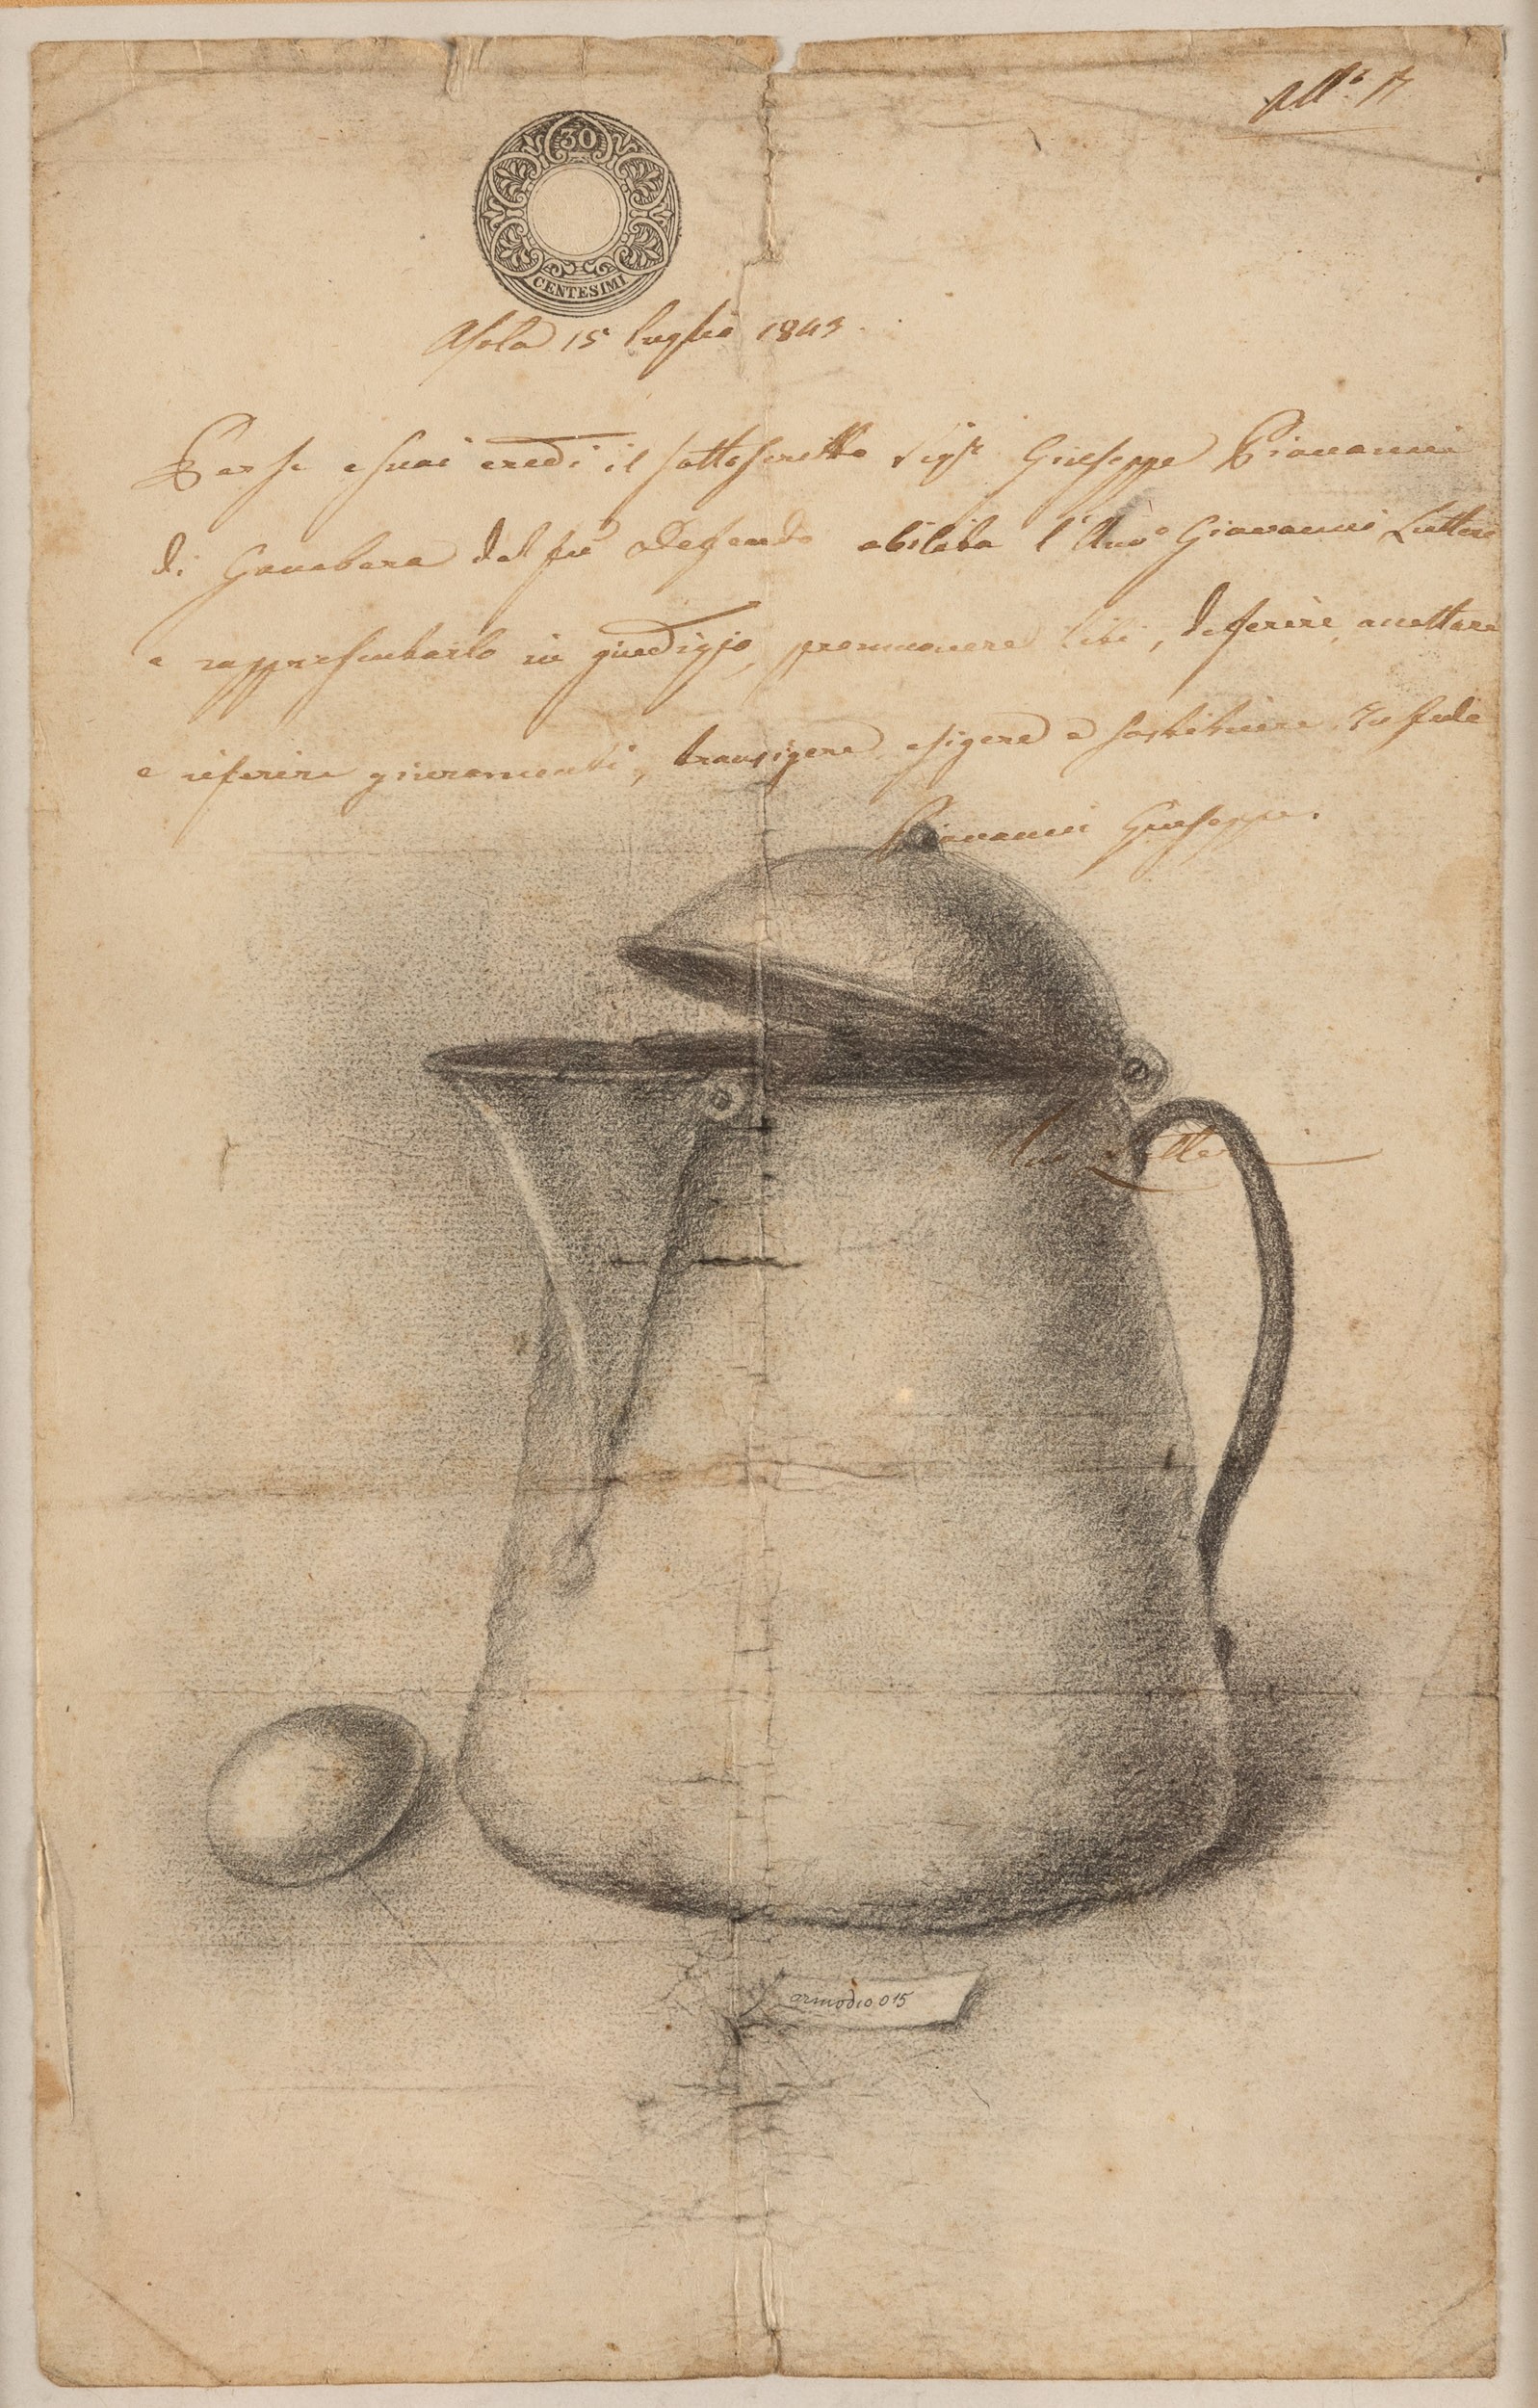 All.°
30
CENTESIMI
Asola 15 luglio 1843
Per se e suoi eredi il sottoscritto Sig.r Giuseppe Piovanni
di Ganebara del fu Defendo abilita l'Avv.o Giovanni
a rappresentarlo in giudizio, promuovere liti, deferire, accettare
e riferire giuramenti, transigere, esigere e sostituire. In fede
Piovanni Giuseppe.
armodio 015